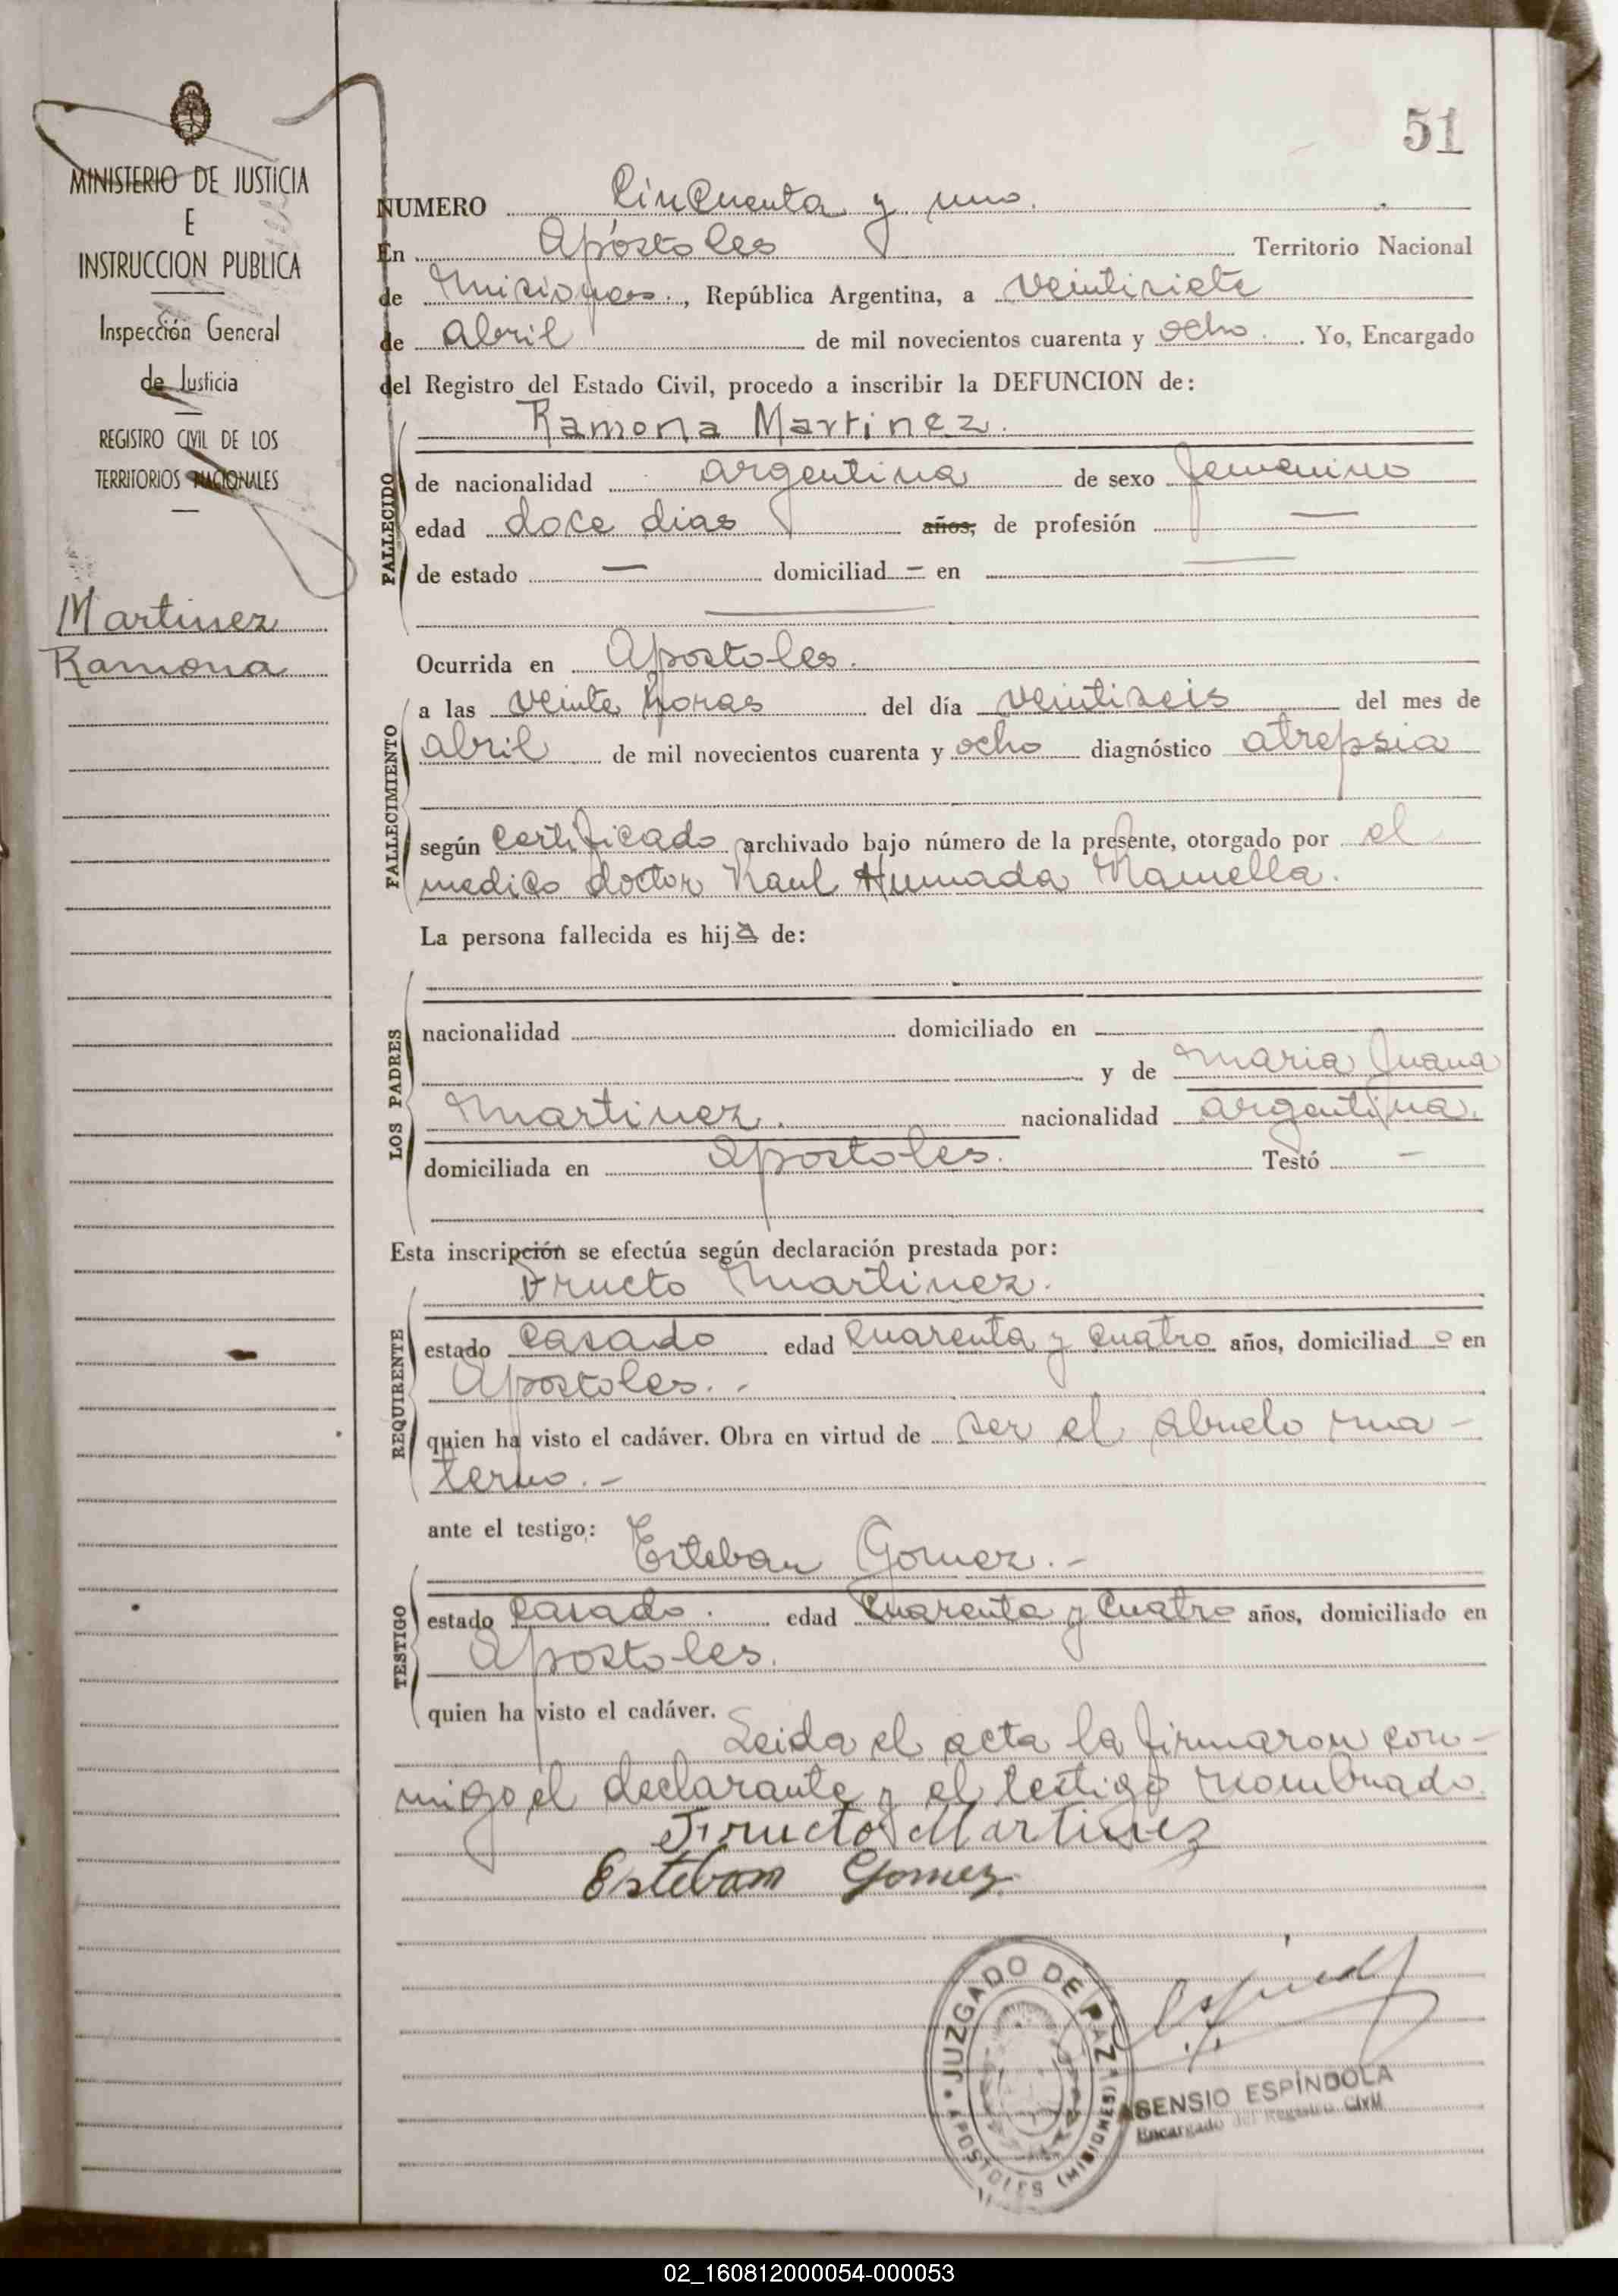 51
MINISTERIO DE JUSTICIA
E
INSTRUCCION PUBLICA
Inspección General
de Justicia
REGISTRO CIVIL DE LOS
TERRITORIOS NACIONALES
Martinez
Ramona
NUMERO Cincuenta y uno.
En Apóstoles Territorio Nacional
de Misiones, República Argentina, a veintisiete
de abril de mil novecientos cuarenta y ocho. Yo, Encargado
del Registro del Estado Civil, procedo a inscribir la DEFUNCION de:
Ramona Martinez.
FALLECIDO
de nacionalidad argentina de sexo femenino
edad doce dias años, de profesión —
de estado — domiciliad - en —
Ocurrida en Apostoles.
FALLECIMIENTO
a las veinte horas del día veintiseis del mes de
abril de mil novecientos cuarenta y ocho diagnóstico atrepsia
según certificado archivado bajo número de la presente, otorgado por el
medico doctor Raul Humada
La persona fallecida es hija de:
LOS PADRES
nacionalidad domiciliado en
y de Maria Juana
Martinez. nacionalidad argentina.
domiciliada en Apostoles. Testó —
Esta inscripción se efectúa según declaración prestada por:
Fructo Martinez.
REQUIRENTE
estado casado edad cuarenta y cuatro años, domiciliado en
Apostoles. -
quien ha visto el cadáver. Obra en virtud de ser el abuelo ma-
terno. -
ante el testigo: Esteban Gomez. -
TESTIGO
estado casado. edad cuarenta y cuatro años, domiciliado en
Apostoles.
quien ha visto el cadáver. Leida el acta la firmaron con-
migo el declarante y el testigo nombrado.
Fructo Martinez
Esteban Gomez
JUZGADO DE PAZ
APOSTOLES (MISIONES)
ASENSIO ESPÍNDOLA
Encargado del Registro Civil
02_160812000054-000053